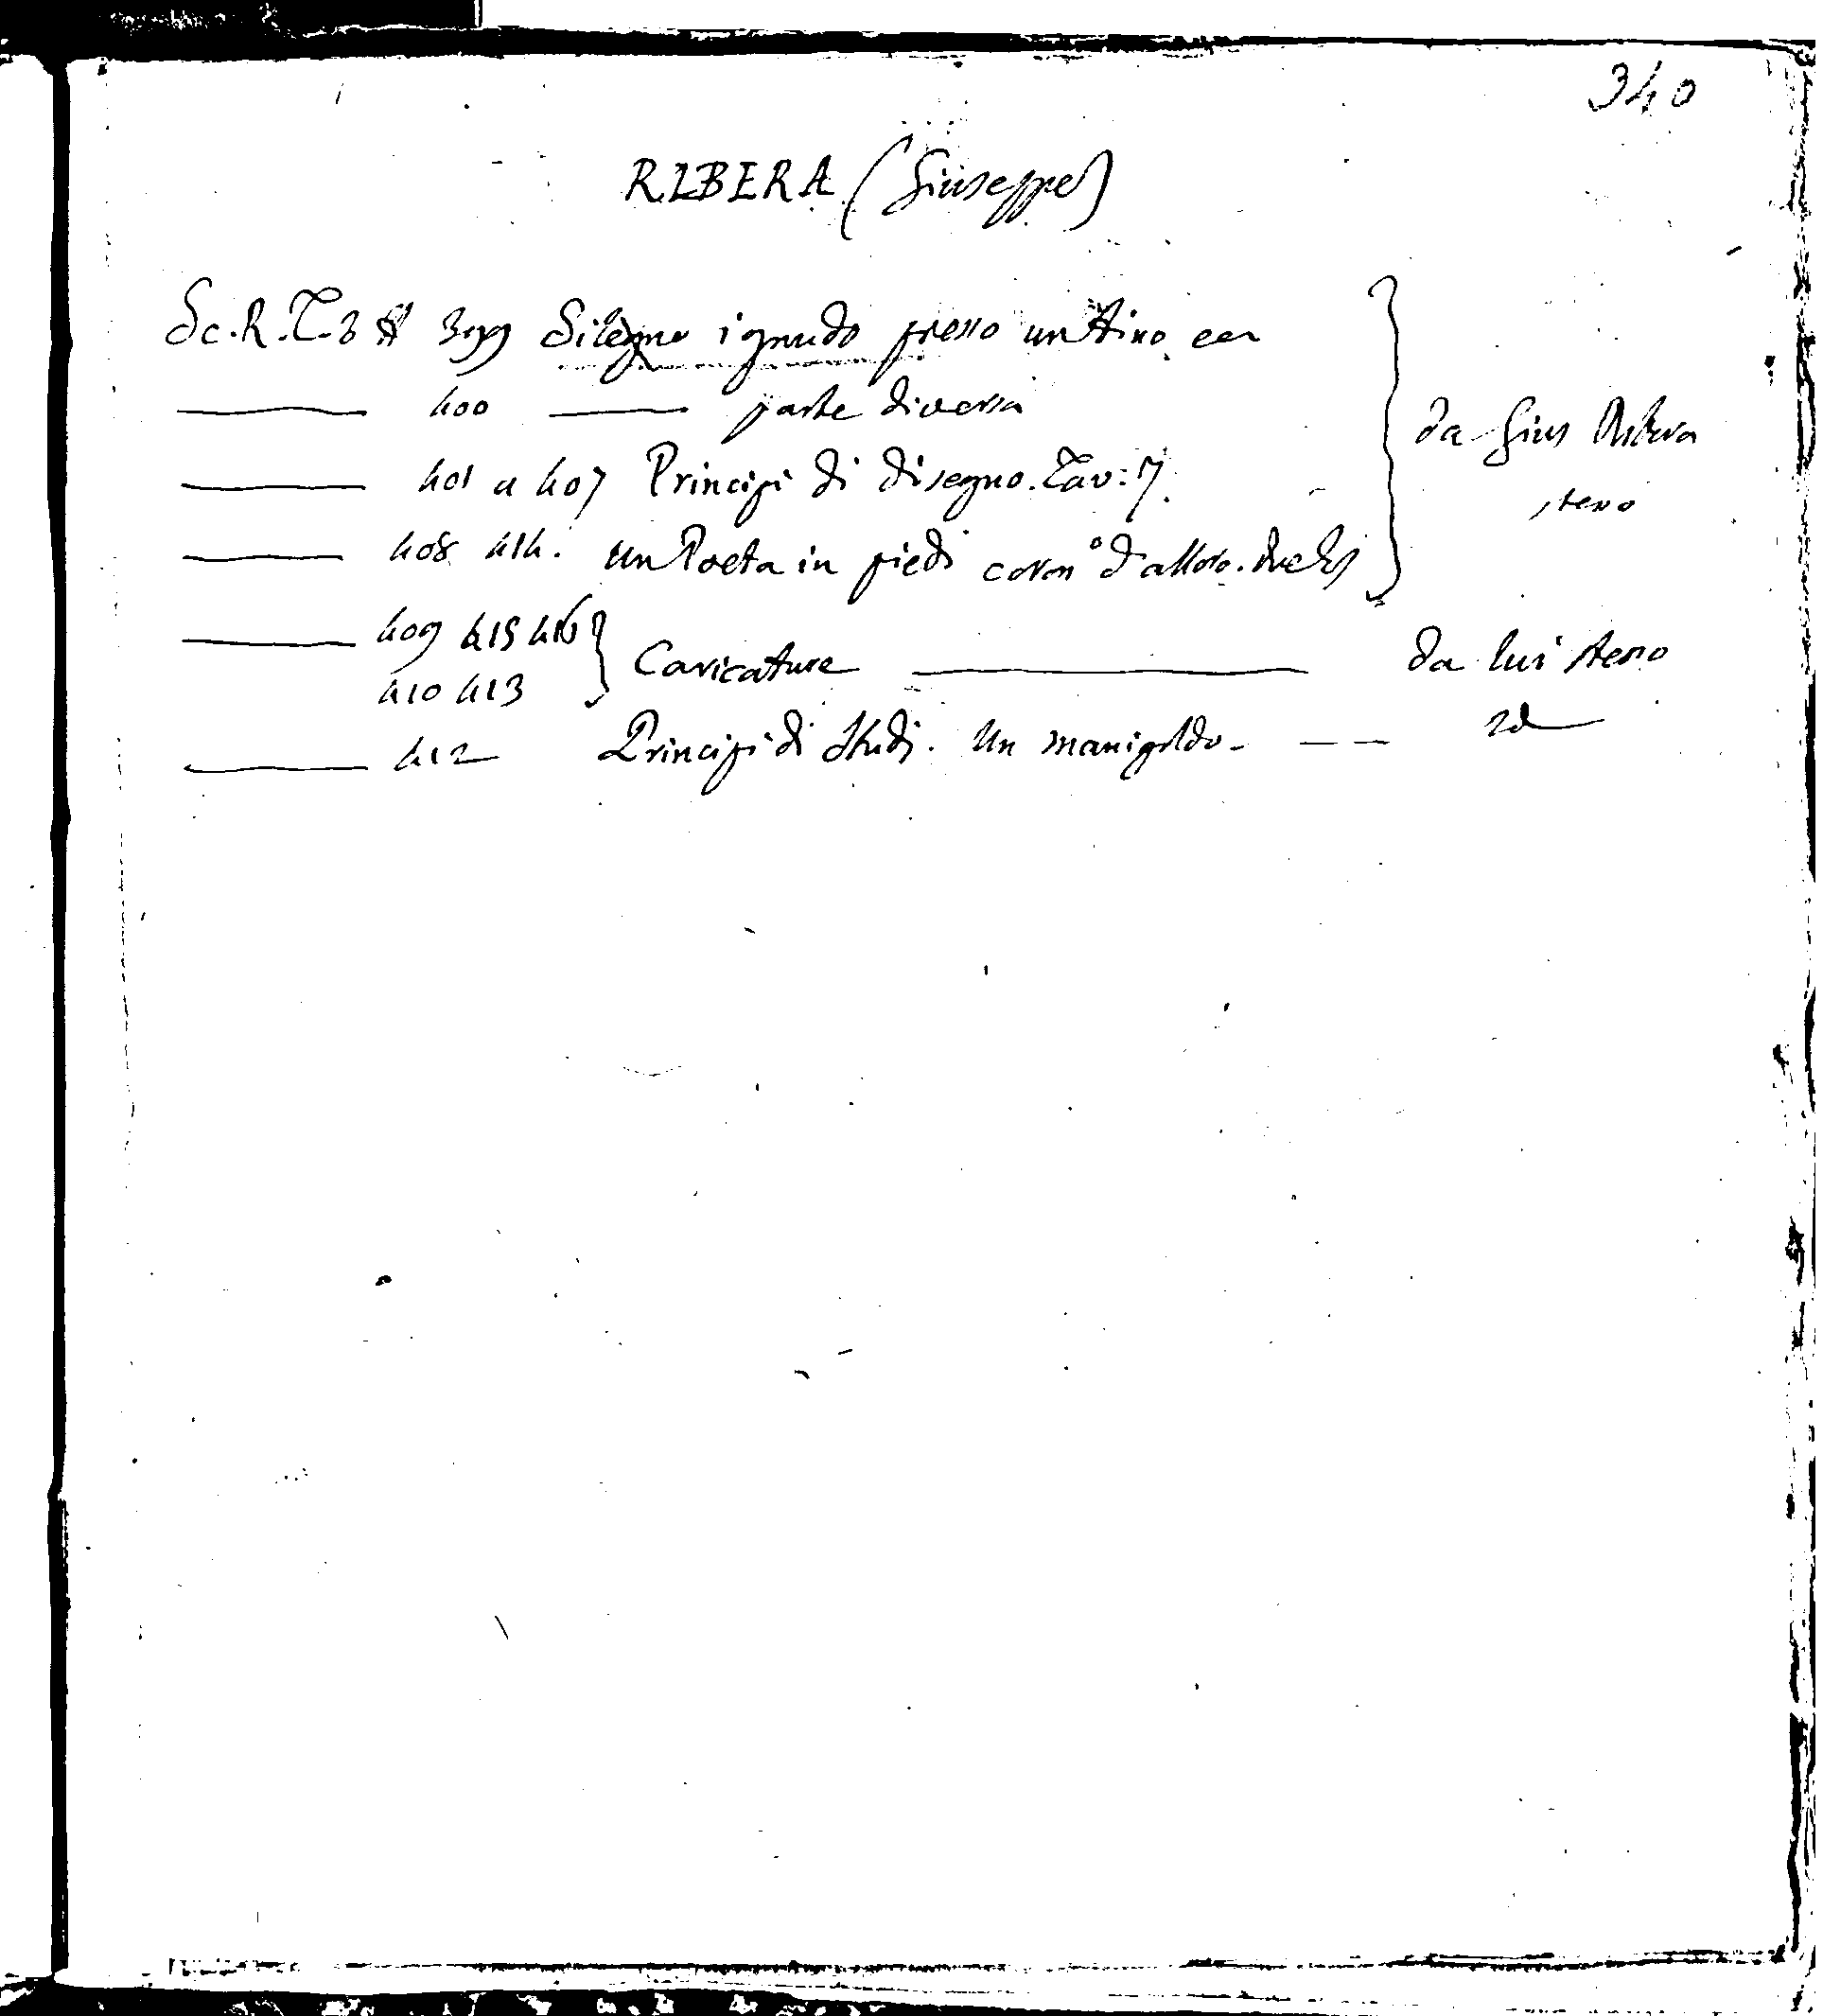 340
RIBERA (Giuseppe)
Sc. R. T. 3 # 399 Sileno ignudo presso un Tino
400 parte diversa
401 a 407 Principi di disegno. Tav: 7.
408 414. Un Poeta in piedi coron° d'alloro.
da Gius Ribera
stesso
409 415 416
410 413
Caricature da lui stesso
412 Principi di Studi. Un manigoldo - - - id